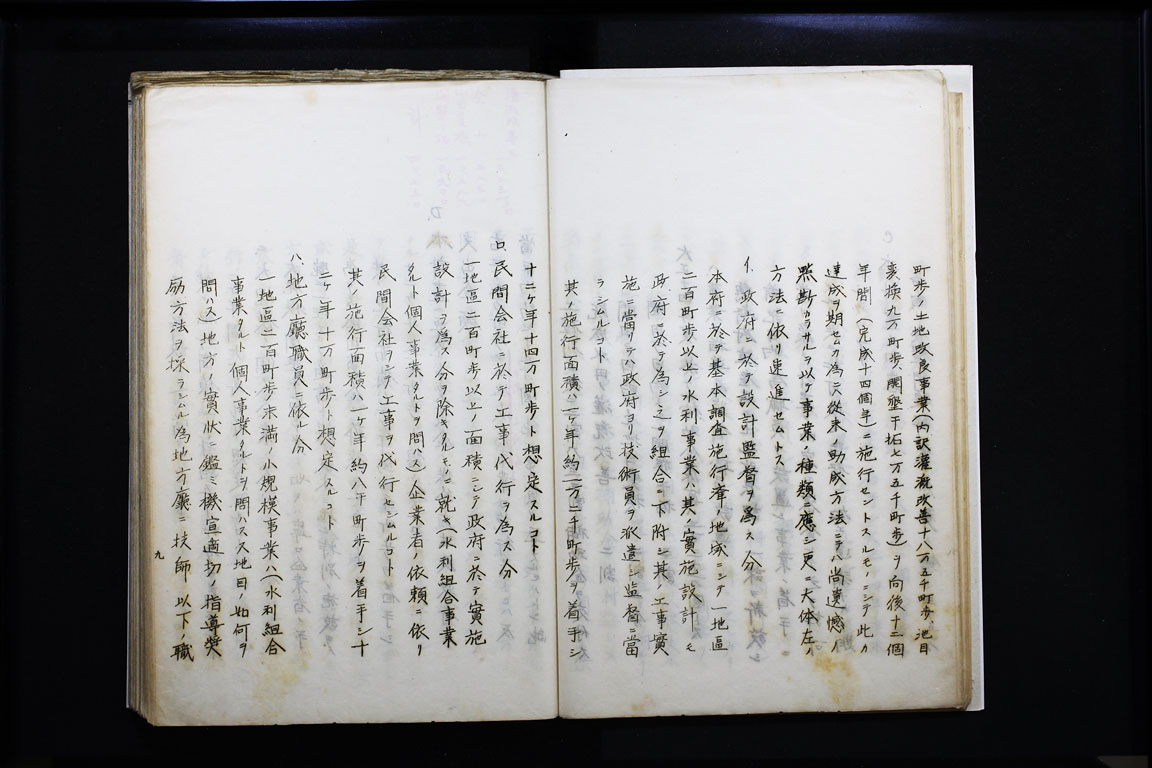 町歩ノ土地改良事業(内訳灌漑改善十八万五千町歩、地目
変換九万町歩、開墾干拓七万五千町歩)ヲ向後十二個
年間(完成十四個年)ニ施行セントスルモノニシテ此カ
達成ヲ期セムカ為ニハ従来ノ助成方法ニテハ尚遺憾ノ
点尠カラサルヲ以テ事業ノ種類ニ應シ更ニ大体左ノ
方法ニ依リ速進セムトス
イ、政府ニ於テ設計監督ヲ為ス分
本府ニ於テ基本調査施行済ノ地域ニシテ一地區
二百町歩以上ノ水利事業ハ其ノ實施設計モ
政府ニ於テ為シ之ヲ組合ニ下附シ其ノ工事實
施ニ當リテハ政府ヨリ技術員ヲ派遣シ監督ニ當
ラシムルコト
其ノ施行面積ハ一ケ年約一万二千町歩ヲ着手シ
十二ケ年十四万町歩ト想定スルコト
ロ、民間会社ニ於テ工事代行ヲ為ス分
一地區二百町歩以上ノ面積ニシテ政府ニ於テ實施
設計ヲ為ス分ヲ除キタルモノニ就キ(水利組合事業
タルト個人事業タルトヲ問ハス)企業者ノ依頼ニ依リ
民間会社ヲシテ工事ヲ代行セシムルコト
其ノ施行面積ハ一ケ年約八千町歩ヲ着手シ十
二ケ年十万町歩ト想定スルコト
ハ、地方廳職員ニ依ル分
一地區二百町歩未満ノ小規模事業ハ(水利組合
事業タルト個人事業タルトヲ問ハス又地目ノ如何ヲ
問ハス)地方ノ實状ニ鑑ミ機宜適切ノ指導奬
励方法ヲ採ラシムル為地方廳ニ技師以下ノ職
九